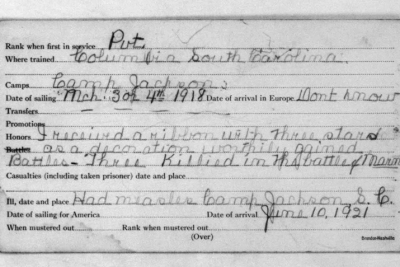 Rank when first in service Pvt.
Where trained Columbia South Carolina.
Camps Camp Jackson:
Date of sailing Mch. 3 or 4th 1918 Date of arrival in Europe Dont know
Transfers
Promotions
Honors I received a ribbon with three stars
Battles as a decoration worthily gained.
Battles - Three Killied in the battle of Marn
Casualties (including taken prisoner) date and place
Ill, date and place Had measles Camp Jackson S. C.
Date of sailing for America Date of arrival June 10, 1921
When mustered out Rank when mustered out
(Over)